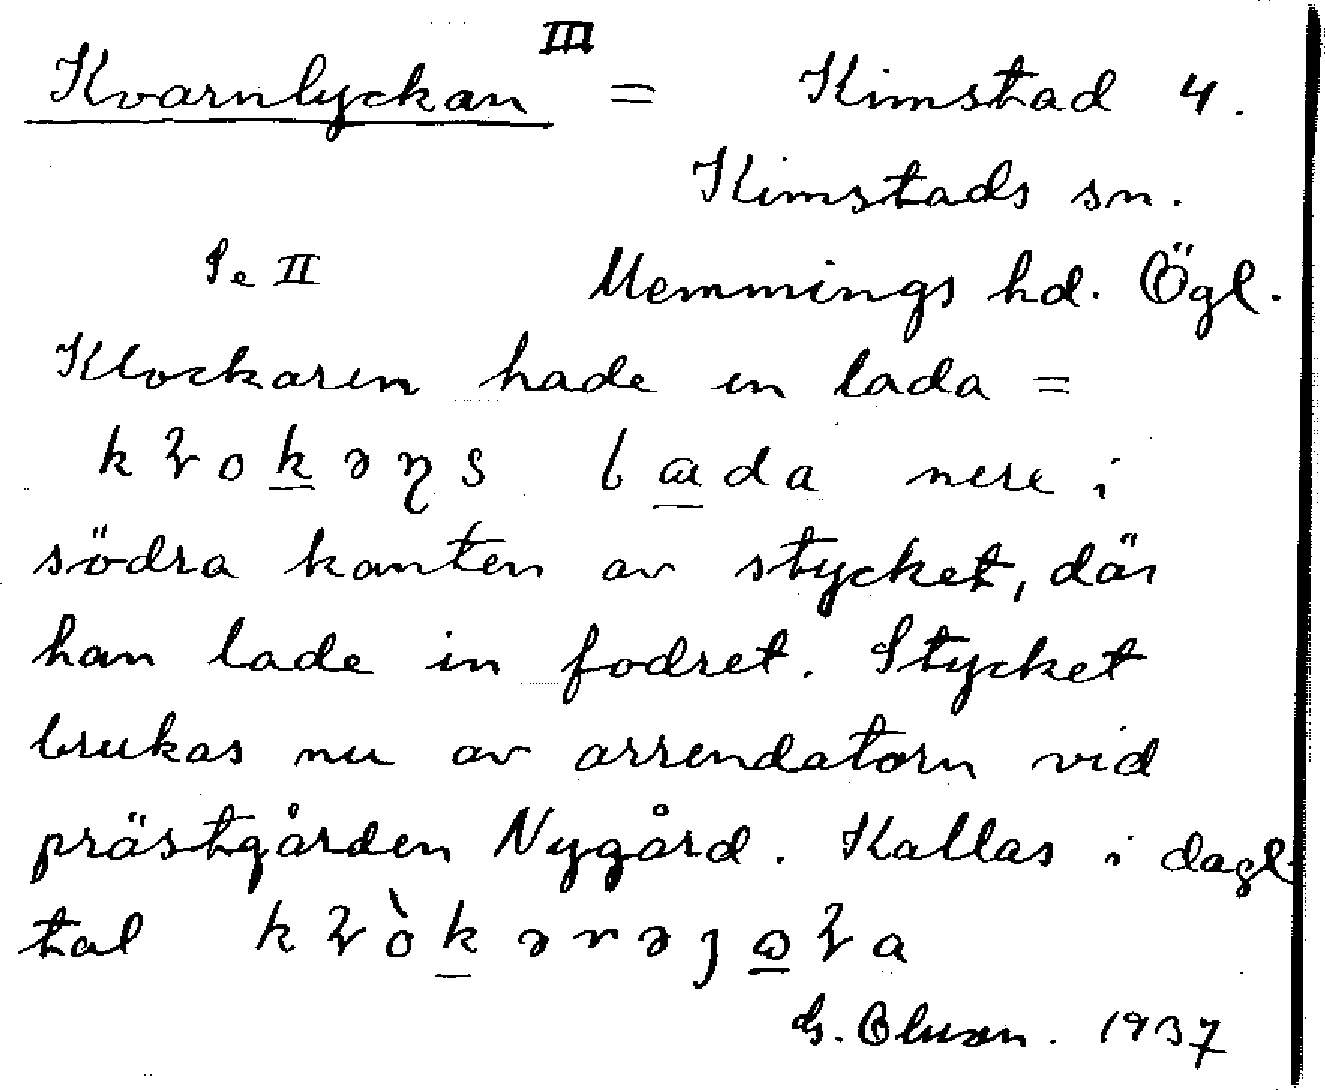 Kvarnlyckan III = Kimstad 4.
Kimstads sn.
Se II Memmings hd. Ögl.
Klockaren hade en lada =
lada nere i
södra kanten av stycket, där
han lade in fodret. Stycket
brukas nu av arrendatorn vid
prästgården Nygård. Kallas i dagl.
tal
G. Olsson. 1937